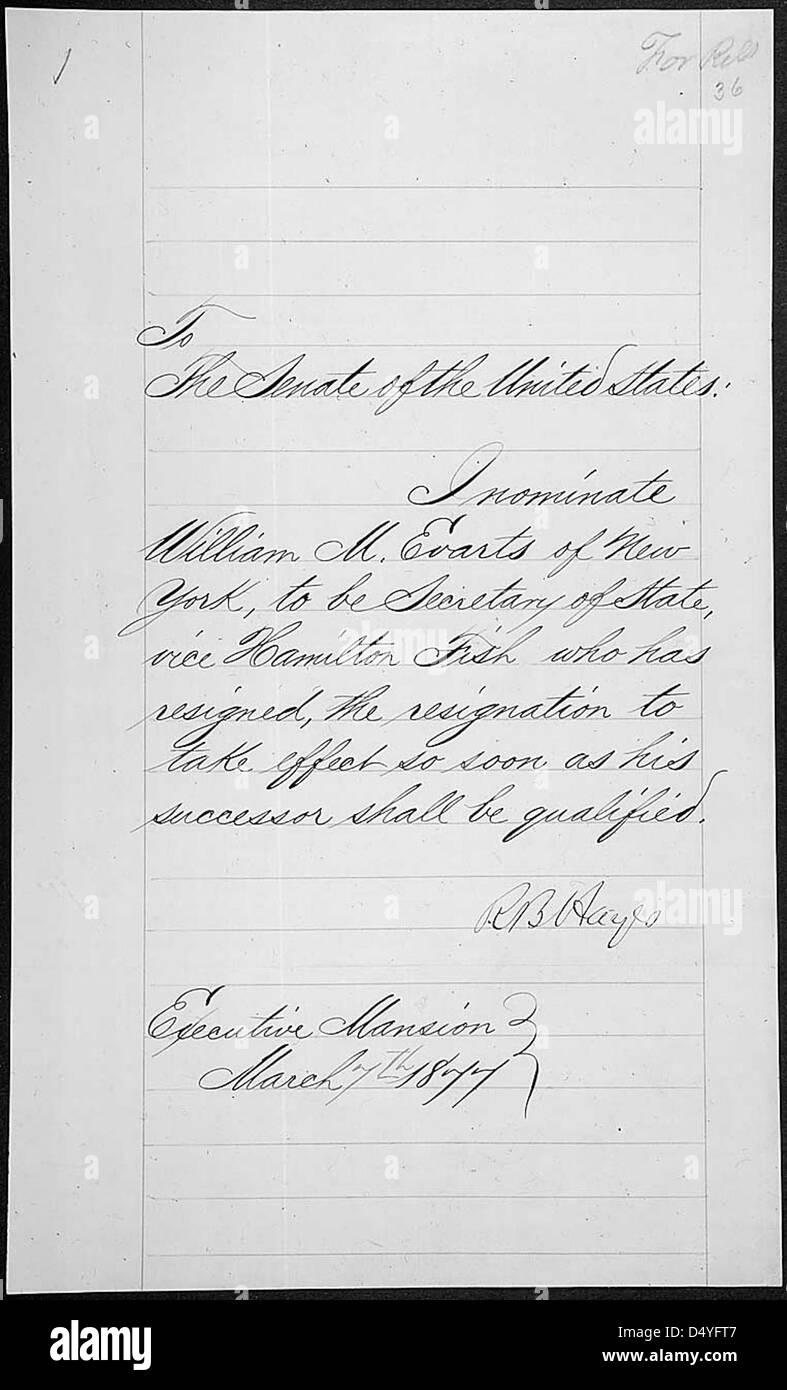 1
For Rel
36
To
The Senate of the United States:
I nominate
William M. Evarts of New
York, to be Secretary of State,
vice Hamilton Fish who has
resigned, the resignation to
take effect so soon as his
successor shall be qualified.
R B Hayes
Executive Mansion
March 7th 1877
alamy
alamy
alamy
Image ID: D4YFT7
www.alamy.com